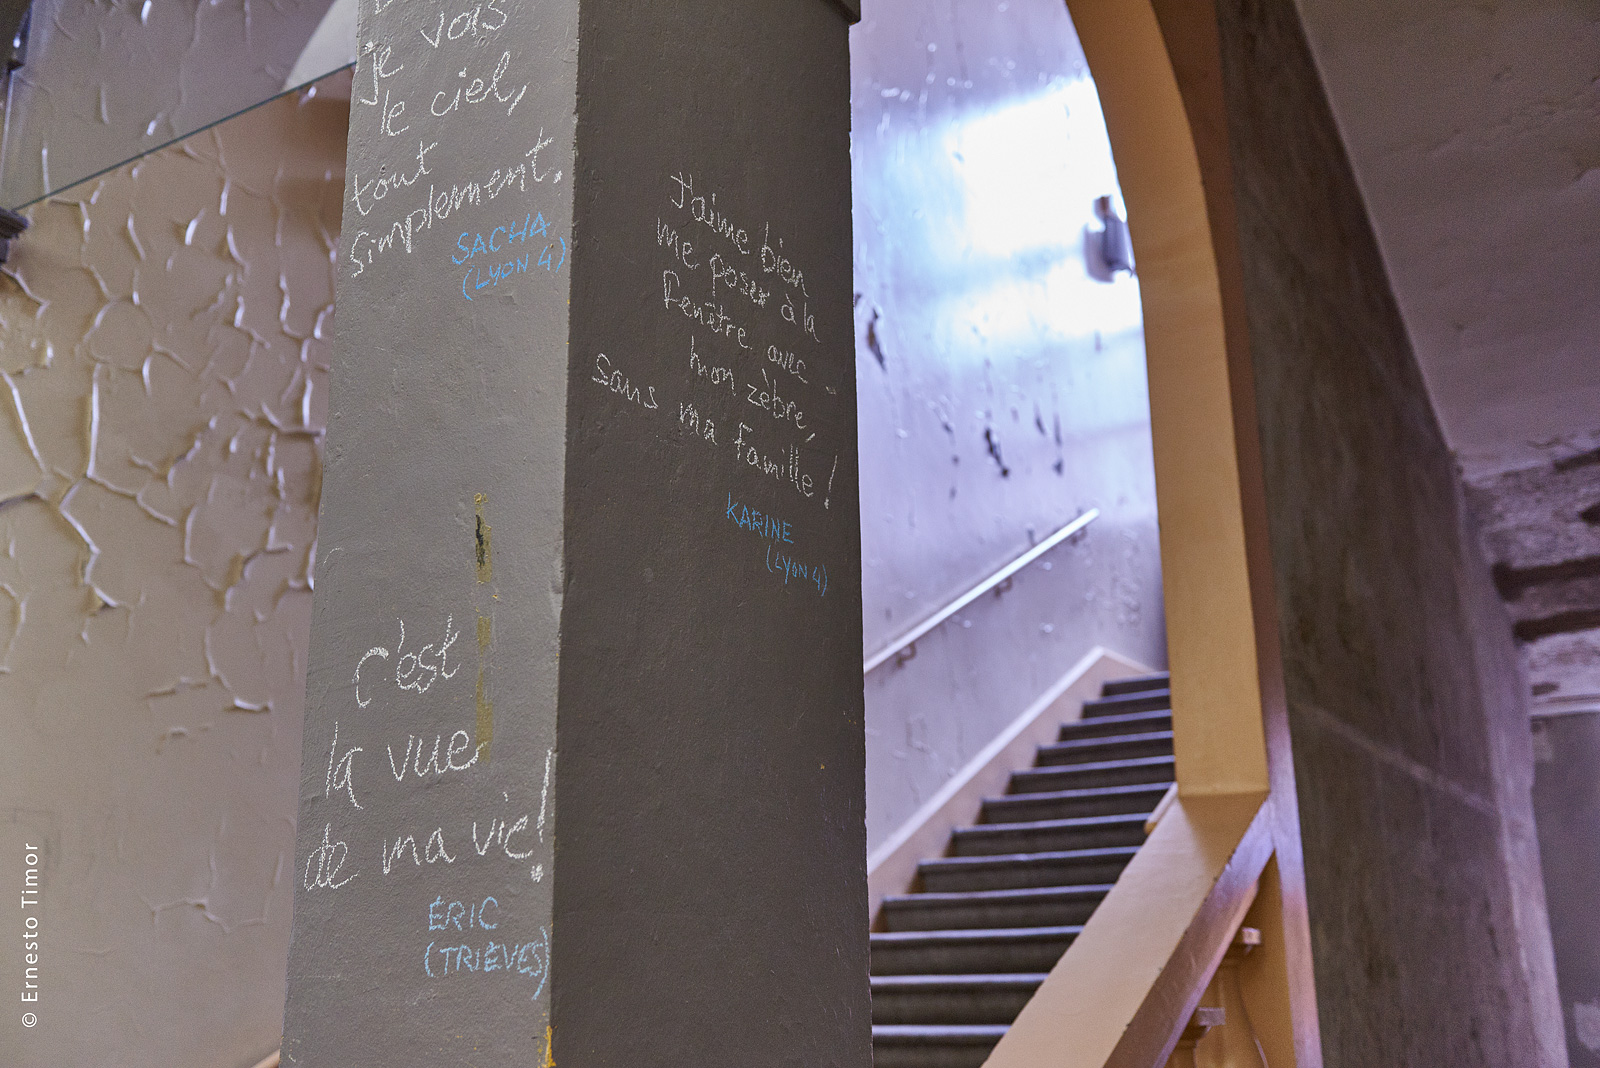 je vois
le ciel,
tout
simplement.
SACHA
(LYON 4)
c'est
la vue
de ma vie!
ÉRIC
(TRIÈVES)
J'aime bien
me poser à la
fenêtre avec
mon zèbre,
sans ma famille!
KARINE
(LYON 4)
© Ernesto Timor